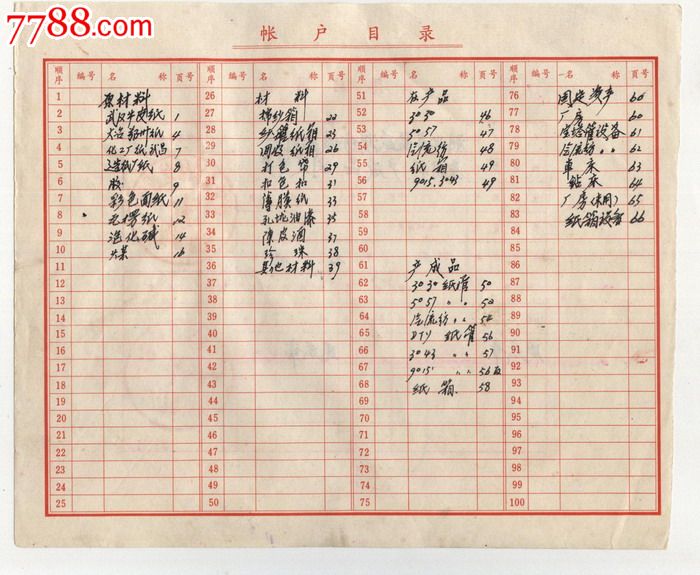 7788.com
帐户目录
顺序 编号 名称 页号 顺序 编号 名称 页号 顺序 编号 名称 页号 顺序 编号 名称 页号
1 原材料
2 武汉牛皮纸 1
3 纸 4
4 化工厂纸 7
5 造纸厂纸 8
6 胶 9
7 彩色面纸 11
8 瓦楞纸 12
9 泡化碱 14
10 16
11
12
13
14
15
16
17
18
19
20
21
22
23
24
25
26 材料
27 棉纱箱 22
28 纸罐纸箱 25
29 纸箱 26
30 打包带 29
31 扣包扣 31
32 薄膜纸 33
33 油漆 35
34 陈皮酒 37
35 珍珠 38
36 其他材料 39
37
38
39
40
41
42
43
44
45
46
47
48
49
50
51 在产品
52 3030 46
53 5057 47
54 气流纺 48
55 纸箱 49
56 9015.3043 49
57
58
59
60
61 产成品
62 3030纸管 50
63 5057〃〃 52
64 气流纺〃〃 54
65 DTY纸管 56
66 3043〃〃 57
67 9015〃 56
68 纸箱 58
69
70
71
72
73
74
75
76 固定资产 60
77 厂房 60
78 纸管设备 61
79 气流纺〃〃 62
80 车床 63
81 钻床 64
82 厂房(未用) 65
83 纸箱设备 66
84
85
86
87
88
89
90
91
92
93
94
95
96
97
98
99
100